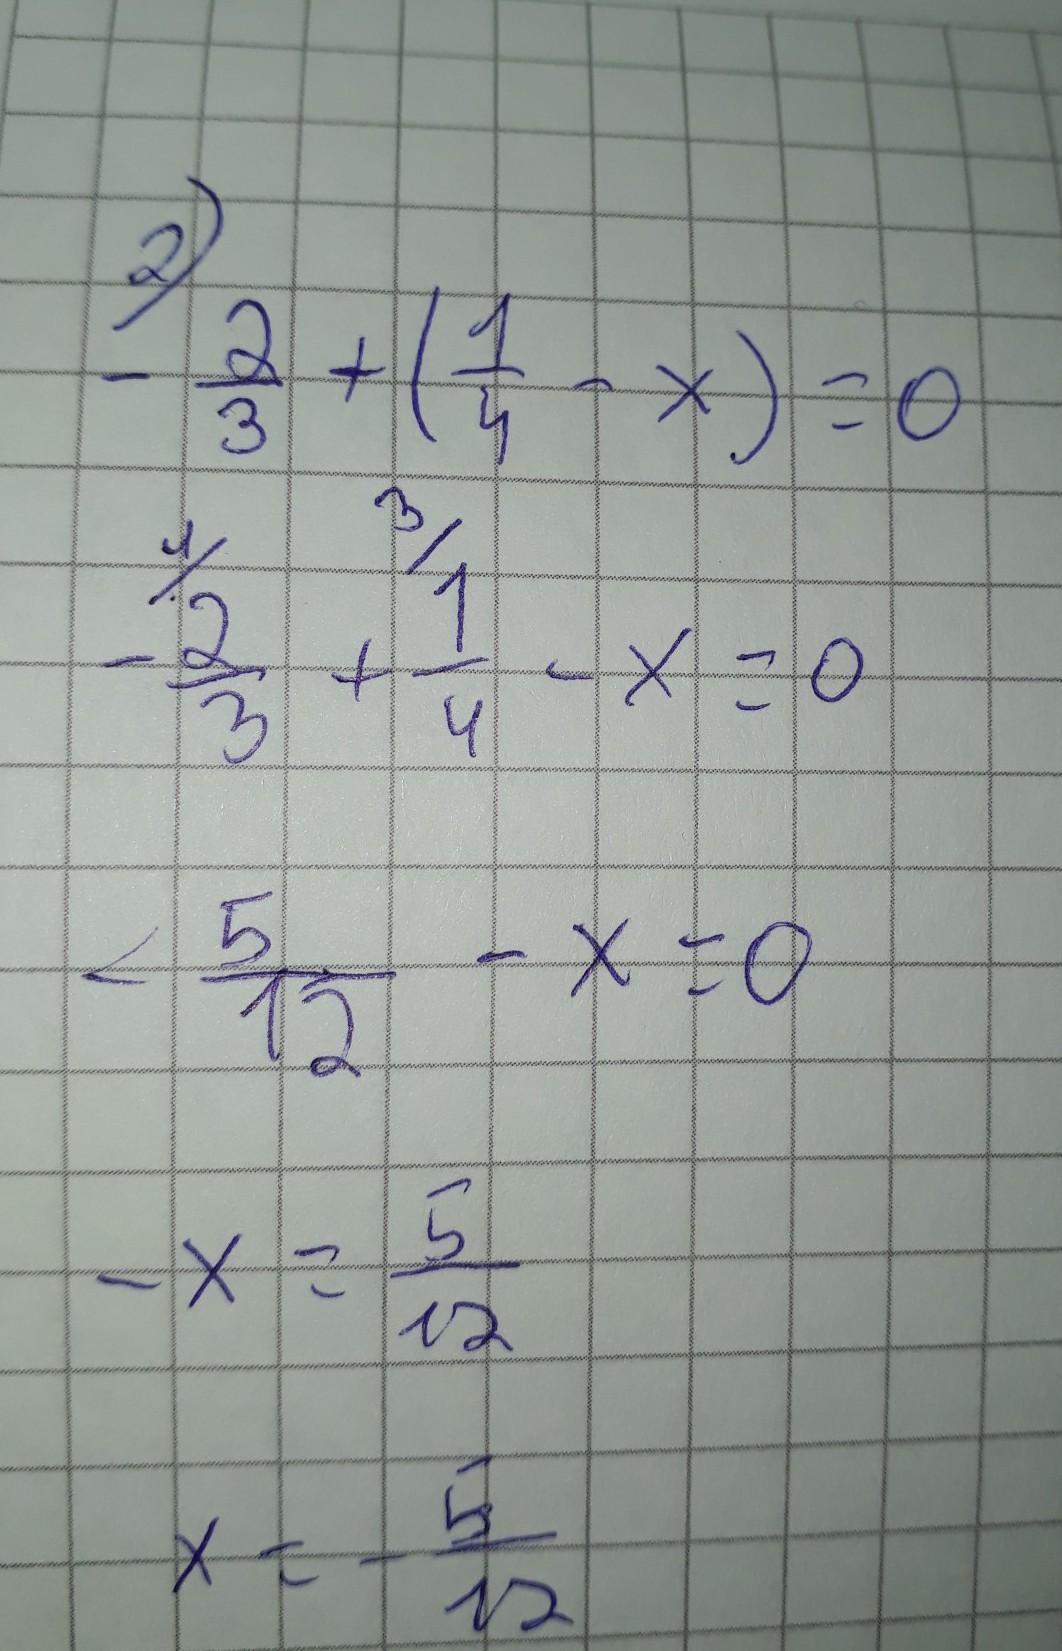 2)
- 2/3 + (1/4 - x) = 0
- 4/ 2/3 + 3/ 1/4 - x = 0
- 5/12 - x = 0
- x = 5/12
x = - 5/12